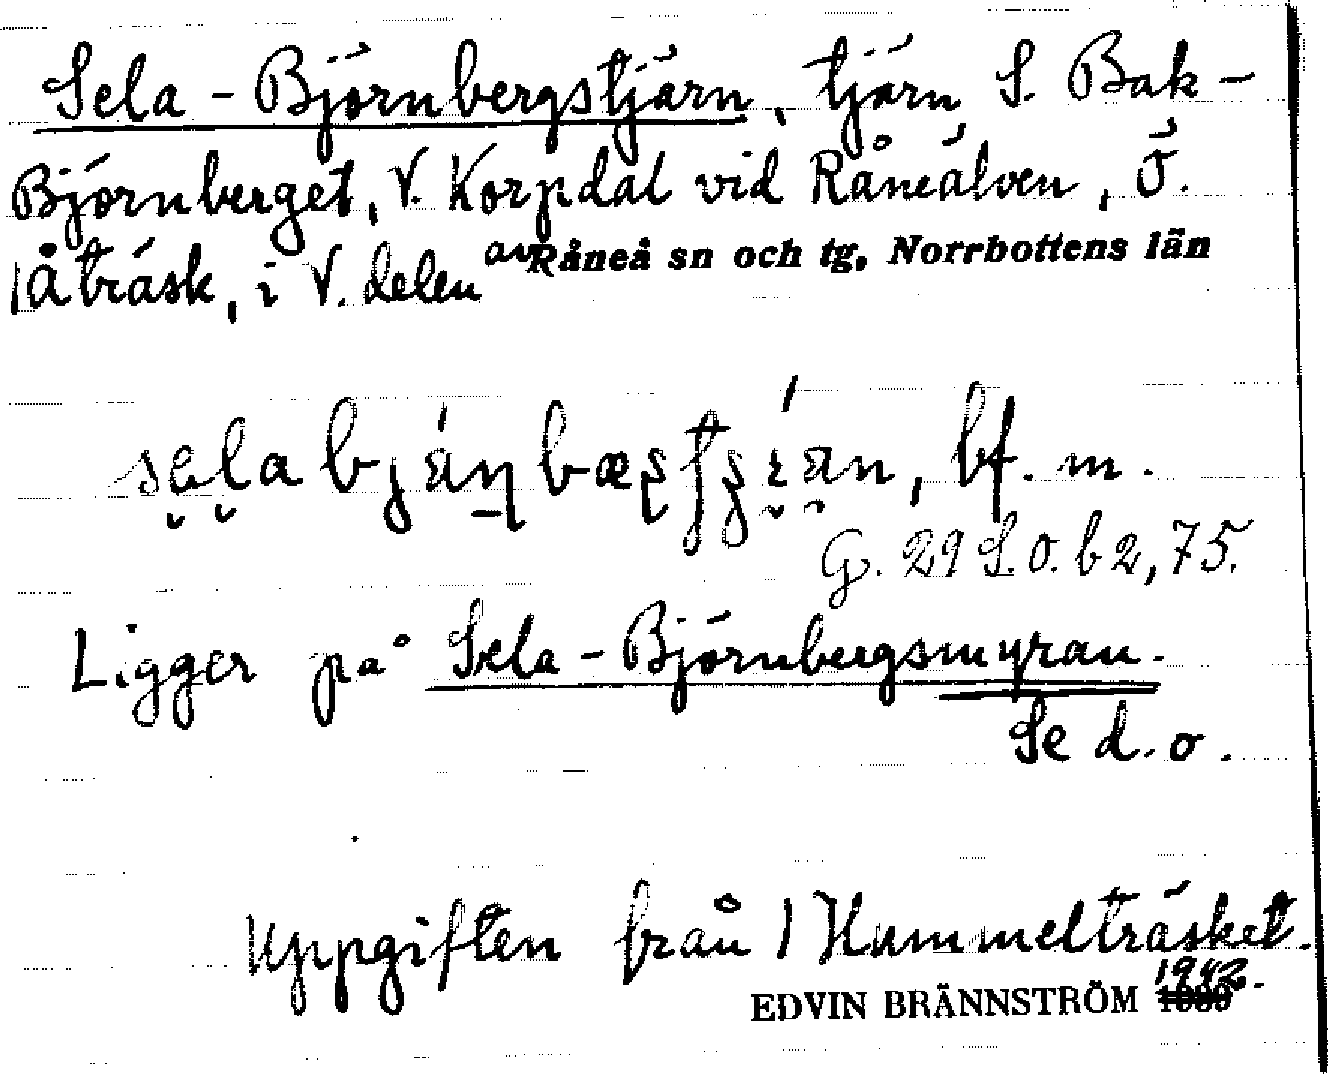 Sela-Björnbergstjärn, tjärn S. Bak-
Björnberget, V. Korpdal vid Råneälven, Ö.
/Åträsk, i V. delen av Råneå sn och tg, Norrbottens län
bf. m.
G. 29 S. Ö. b 2, 75.
Ligger på Sela-Björnbergsmyran.
Se d. o.
Uppgiften från /Hummelträsket.
EDVIN BRÄNNSTRÖM 1942.